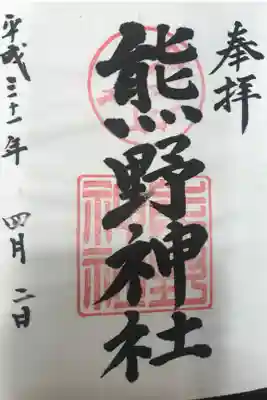 奉拝
熊野神社
平成三十一年 四月 二日